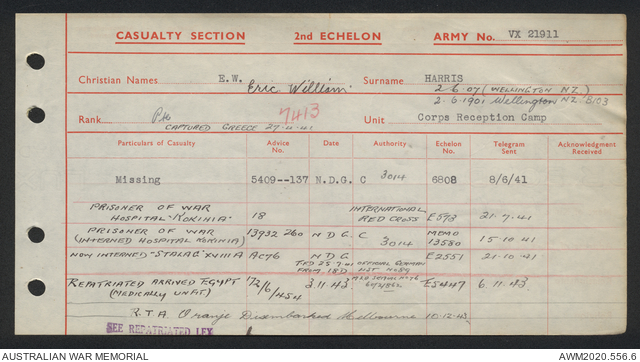 CASUALTY SECTION 2nd ECHELON ARMY No. VX 21911
Christian Names E.W. Eric William Surname HARRIS
2.6.07 (WELLINGTON NZ)
2.6.1901 Wellington NZ
Rank Pte 7413 Unit Corps Reception Camp
CAPTURED GREECE 27.4.41
Particulars of Casualty Advice No. Date Authority Echelon No. Telegram Sent Acknowledgment Received
Missing 5409--137 N.D.G. C 3014 6808 8/6/41
PRISONER OF WAR HOSPITAL "KOKINIA" 18 INTERNATIONAL RED CROSS E593 21.7.41
PRISONER OF WAR 13932 260 N D G. C 3014 MEMO 13580 15.10.41
(INTERNED HOSPITAL KOKINIA)
NOW INTERNED "STALAG" XVIII A AC76 N D G OFFICIAL GERMAN E2551 21.10.41
TFD 25.7.41
FROM 18D
REPATRIATED ARRIVED EGYPT 3.11.43 E5447 6.11.43
(MEDICALLY UNFIT)
R.T.A Oranje Disembarked Melbourne 10.12.43
SEE REPATRIATED LEX
AUSTRALIAN WAR MEMORIAL AWM2020.556.6